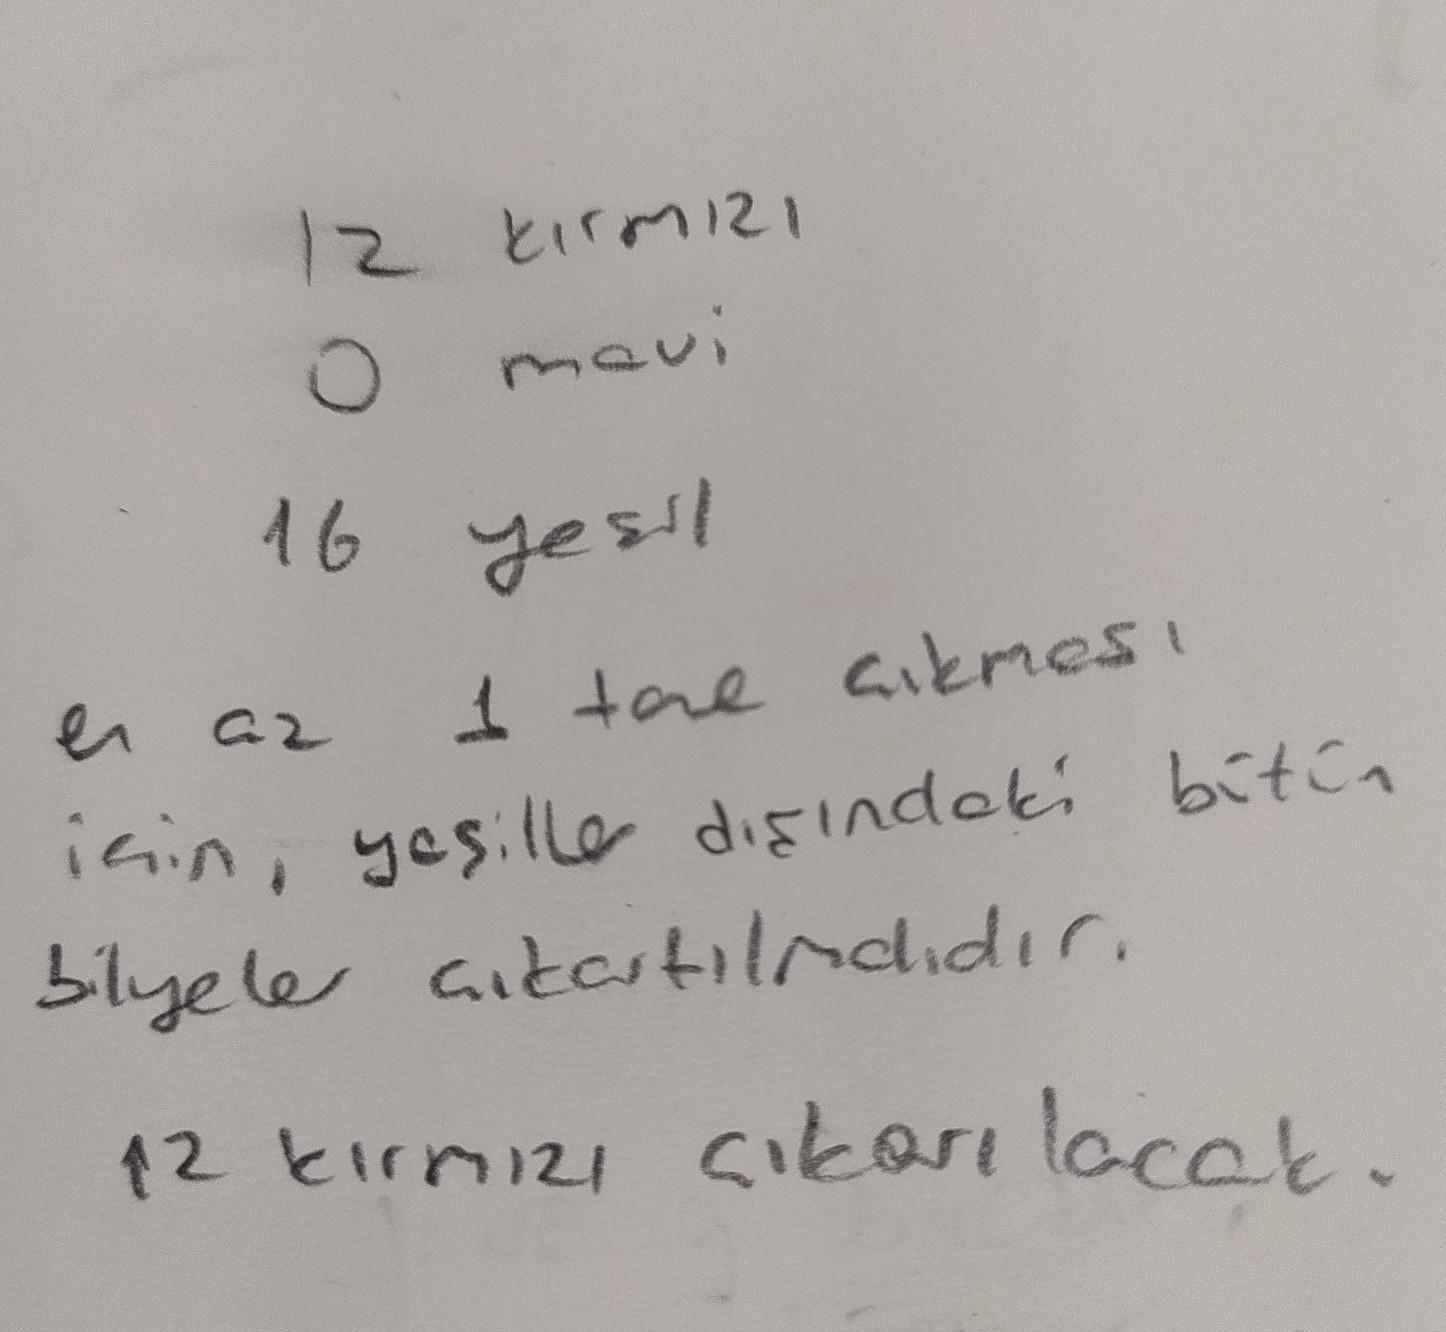 12 kırmızı
0 mavi
16 yeşil
en az 1 tane çıkması
için, yeşiller dışındaki bütün
bilyeler çıkartılmalıdır.
12 kırmızı çıkarılacak.